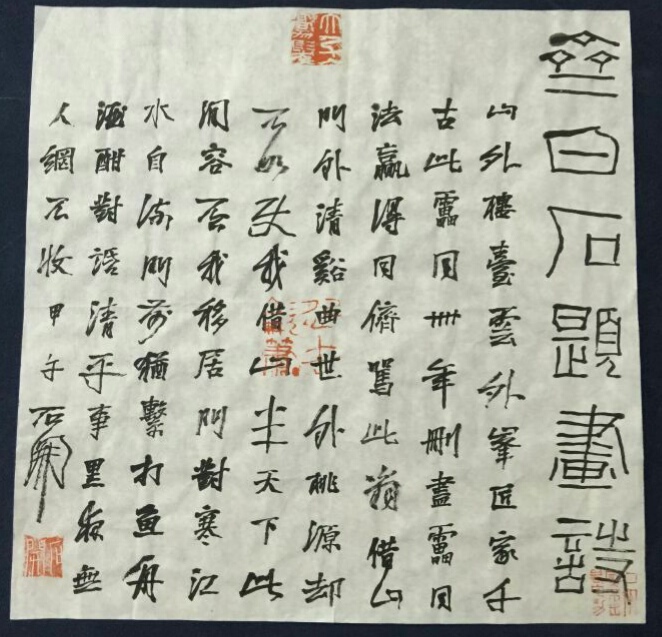 齊白石題畫詩
山外樓臺雲外峯匠家千
古此靁同卅年刪盡靁同
法贏得同儕罵此翁借山
門外清谿曲世外桃源却
不如我借山半天下此
間容否我移居門對寒江
水自流門前猶繫打魚舟
酒酣對語清平事黑夜無
人網不收甲午石開